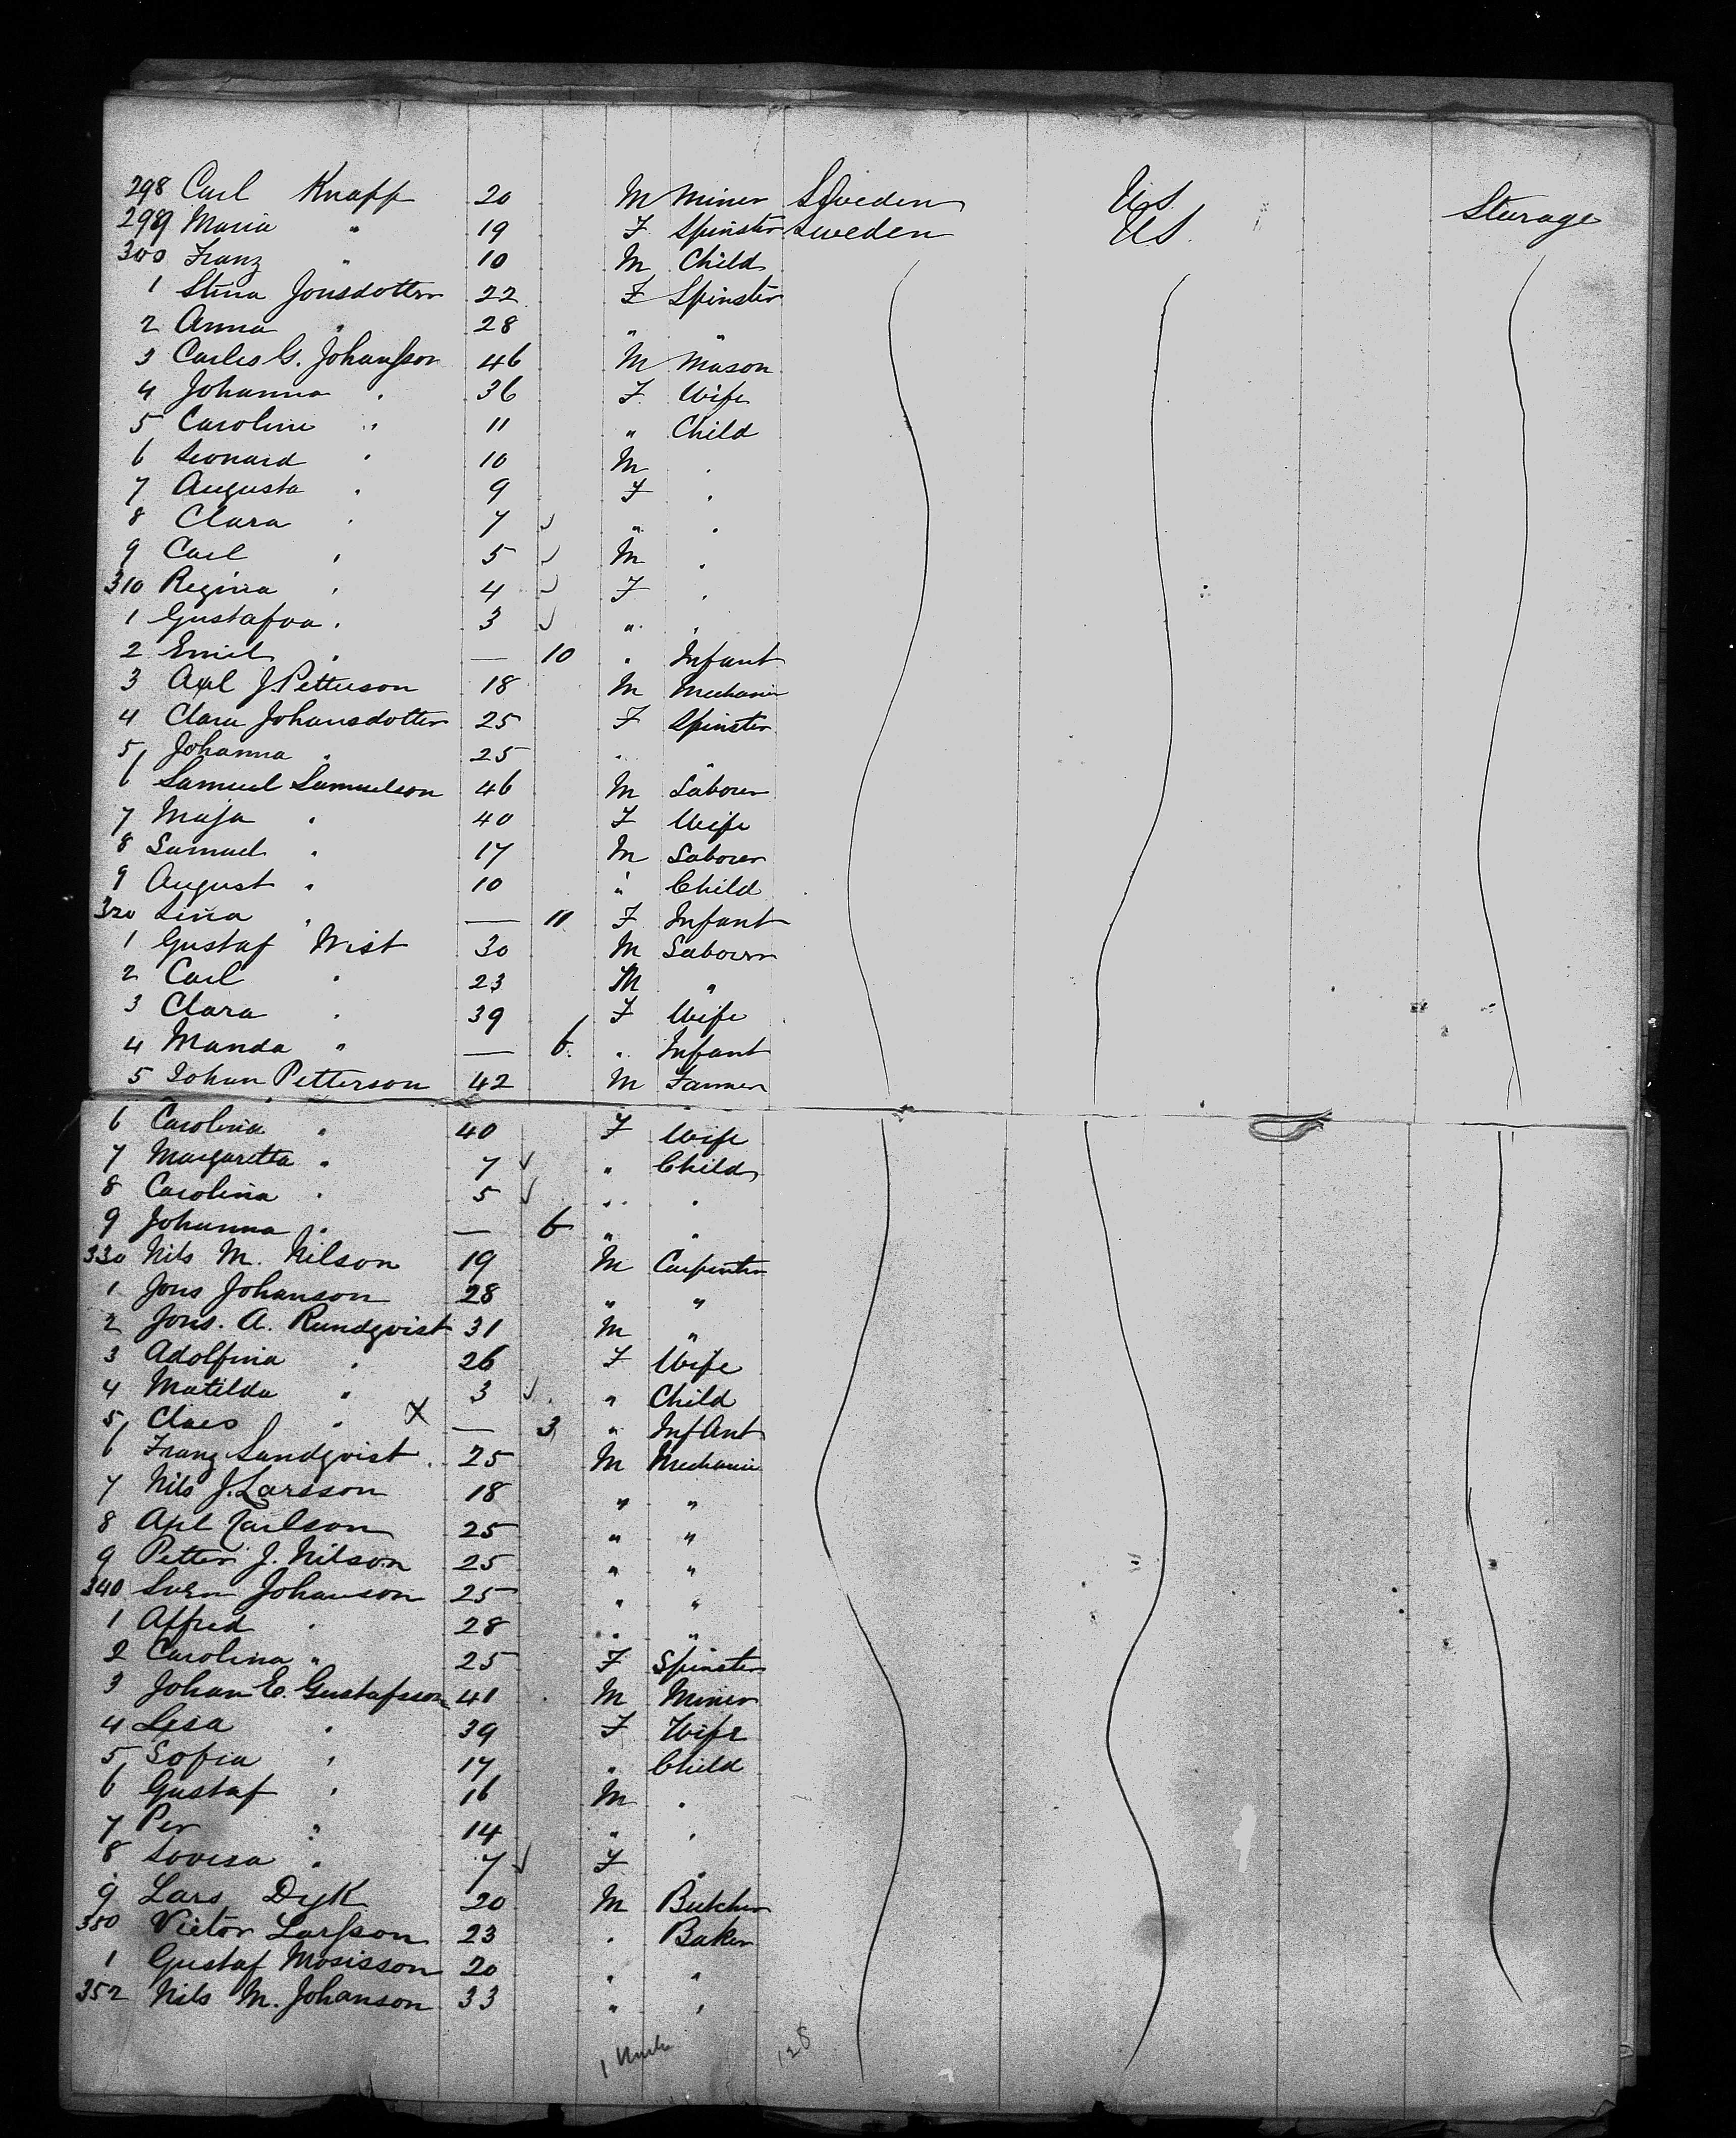 298 Carl Knapp 20 M Miner Sweden U.S. Sturage
299 Maria " 19 F Spinster Sweden U.S.
300 Franz " 10 M Child
1 Stina Jonsdotter 22 F Spinster
2 Anna " 28 " "
3 Carles G. Johansson 46 M Mason
4 Johanna " 36 F Wife
5 Caroline " 11 " Child
6 Leonard " 10 M "
7 Augusta " 9 F "
8 Clara " 7 ✓ " "
9 Carl " 5 ✓ M "
310 Regina " 4 ✓ F "
1 Gustafva " 3 ✓ " "
2 Emil " — 10 " Infant
3 Axel J. Petterson 18 M Mechanic
4 Clara Johansdotter 25 F Spinster
5 Johanna " 25 " "
6 Samuel Samuelson 46 M Labourer
7 Maja " 40 F Wife
8 Samuel " 17 M Labourer
9 August " 10 " Child
320 Lina " — 11 F Infant
1 Gustaf Wist 30 M Labourer
2 Carl " 23 M "
3 Clara " 39 F Wife
4 Manda " — 6 " Infant
5 Johan Petterson 42 M Farmer
6 Carolina " 40 F Wife
7 Margaretta " 7 ✓ " Child
8 Carolina " 5 ✓ " "
9 Johanna " — 6 " "
330 Nils M. Nilson 19 M Carpenter
1 Jons Johanson 28 " "
2 Jons. A. Rundqvist 31 M "
3 Adolfina " 26 F Wife
4 Matilda " 3 ✓ " Child
5 Claes " X — 3 " Infant
6 Franz Sandqvist 25 M Mechanic
7 Nils J. Larsson 18 " "
8 Axel Carlson 25 " "
9 Petter J. Nilson 25 " "
340 Sven Johanson 25 " "
1 Alfred " 28 " "
2 Carolina " 25 F Spinster
3 Johan E. Gustafsson 41 M Miner
4 Lisa " 39 F Wife
5 Sofia " 17 " Child
6 Gustaf " 16 M "
7 Per " 14 " "
8 Lovisa " 7 ✓ F "
9 Lars Dyk 20 M Butcher
350 Victor Larsson 23 " Baker
1 Gustaf Mosisson 20 " "
352 Nils M. Johanson 33 " "
1 128